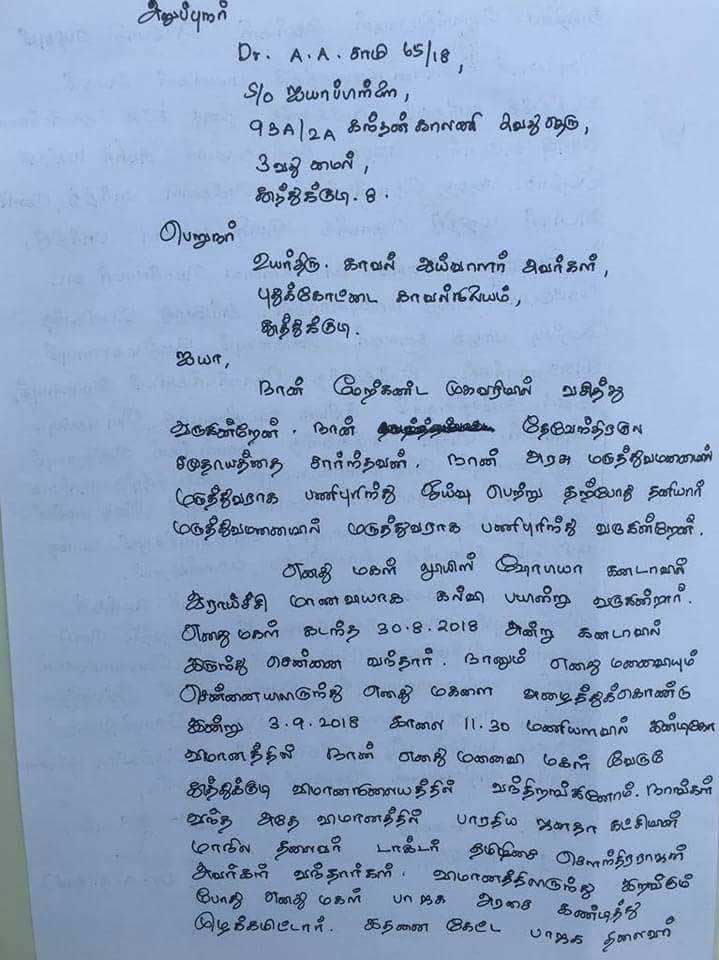 அனுப்புநர்
Dr. A. A. சாமி 65/18,
S/o ஐயாபிள்ளை,
93A/2A கந்தன் காலணி 2வது தெரு,
3 வது மைல்,
தூத்துக்குடி. 8.
பெறுநர்
உயர்திரு. காவல் ஆய்வாளர் அவர்கள்,
புதுக்கோட்டை காவல்நிலையம்,
தூத்துக்குடி.
ஐயா,
நான் மேற்கண்ட முகவரியில் வசித்து
வருகின்றேன். நான் தேவேந்திரகுல
சமுதாயத்தை சார்ந்தவன். நான் அரசு மருத்துவமனையில்
மருத்துவராக பணிபுரிந்து ஓய்வு பெற்று தற்போது தனியார்
மருத்துவமனையில் மருத்துவராக பணிபுரிந்து வருகின்றேன்.
எனது மகள் லூயிஸ் ஷோபியா கனடாவில்
ஆராய்ச்சி மாணவியாக கல்வி பயின்று வருகின்றார்.
எனது மகள் கடந்த 30.8.2018 அன்று கனடாவில்
இருந்து சென்னை வந்தார். நானும் எனது மனைவியும்
சென்னையிலிருந்து எனது மகளை அழைத்துக்கொண்டு
இன்று 3.9.2018 காலை 11.30 மணியளவில் இண்டிகோ
விமானத்தில் நான் எனது மனைவி மகள் மூவரும்
தூத்துக்குடி விமானநிலையத்தில் வந்திறங்கினோம். நாங்கள்
வந்த அதே விமானத்தில் பாரதிய ஜனதா கட்சியின்
மாநில தலைவர் டாக்டர் தமிழிசை சௌந்திரராஜன்
அவர்கள் வந்தார்கள். விமானத்திலிருந்து இறங்கும்
போது எனது மகள் பாஜக அரசை கண்டித்து
முழக்கமிட்டார். இதனை கேட்ட பாஜக தலைவர்